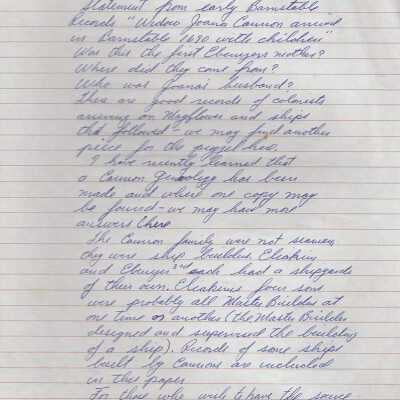 Statement from early Barnstable
Records "Widow Joana Cannon arrived
in Barnstable 1690 with children"
Was this the first Ebenezers mother?
Where did they come from?
Who was Joana's husband?
There are good records of colonists
arriving on Mayflower and ships
that followed - we may find another
piece for the puzzel here.
I have recently learned that
a Cannon Geneology has been
made and where one copy may
be found - we may have more
answers there
The Cannon family were not seamen
they were ship builders. Eleakim
and Ebenezer 2nd each had a shipyard
of their own. Eleakims four sons
were probably all Master Builders at
one time or another (the Master Builder
designed and supervised the building
of a ship). Records of some ships
built by Cannons are included
in this paper
For those who wish to have the